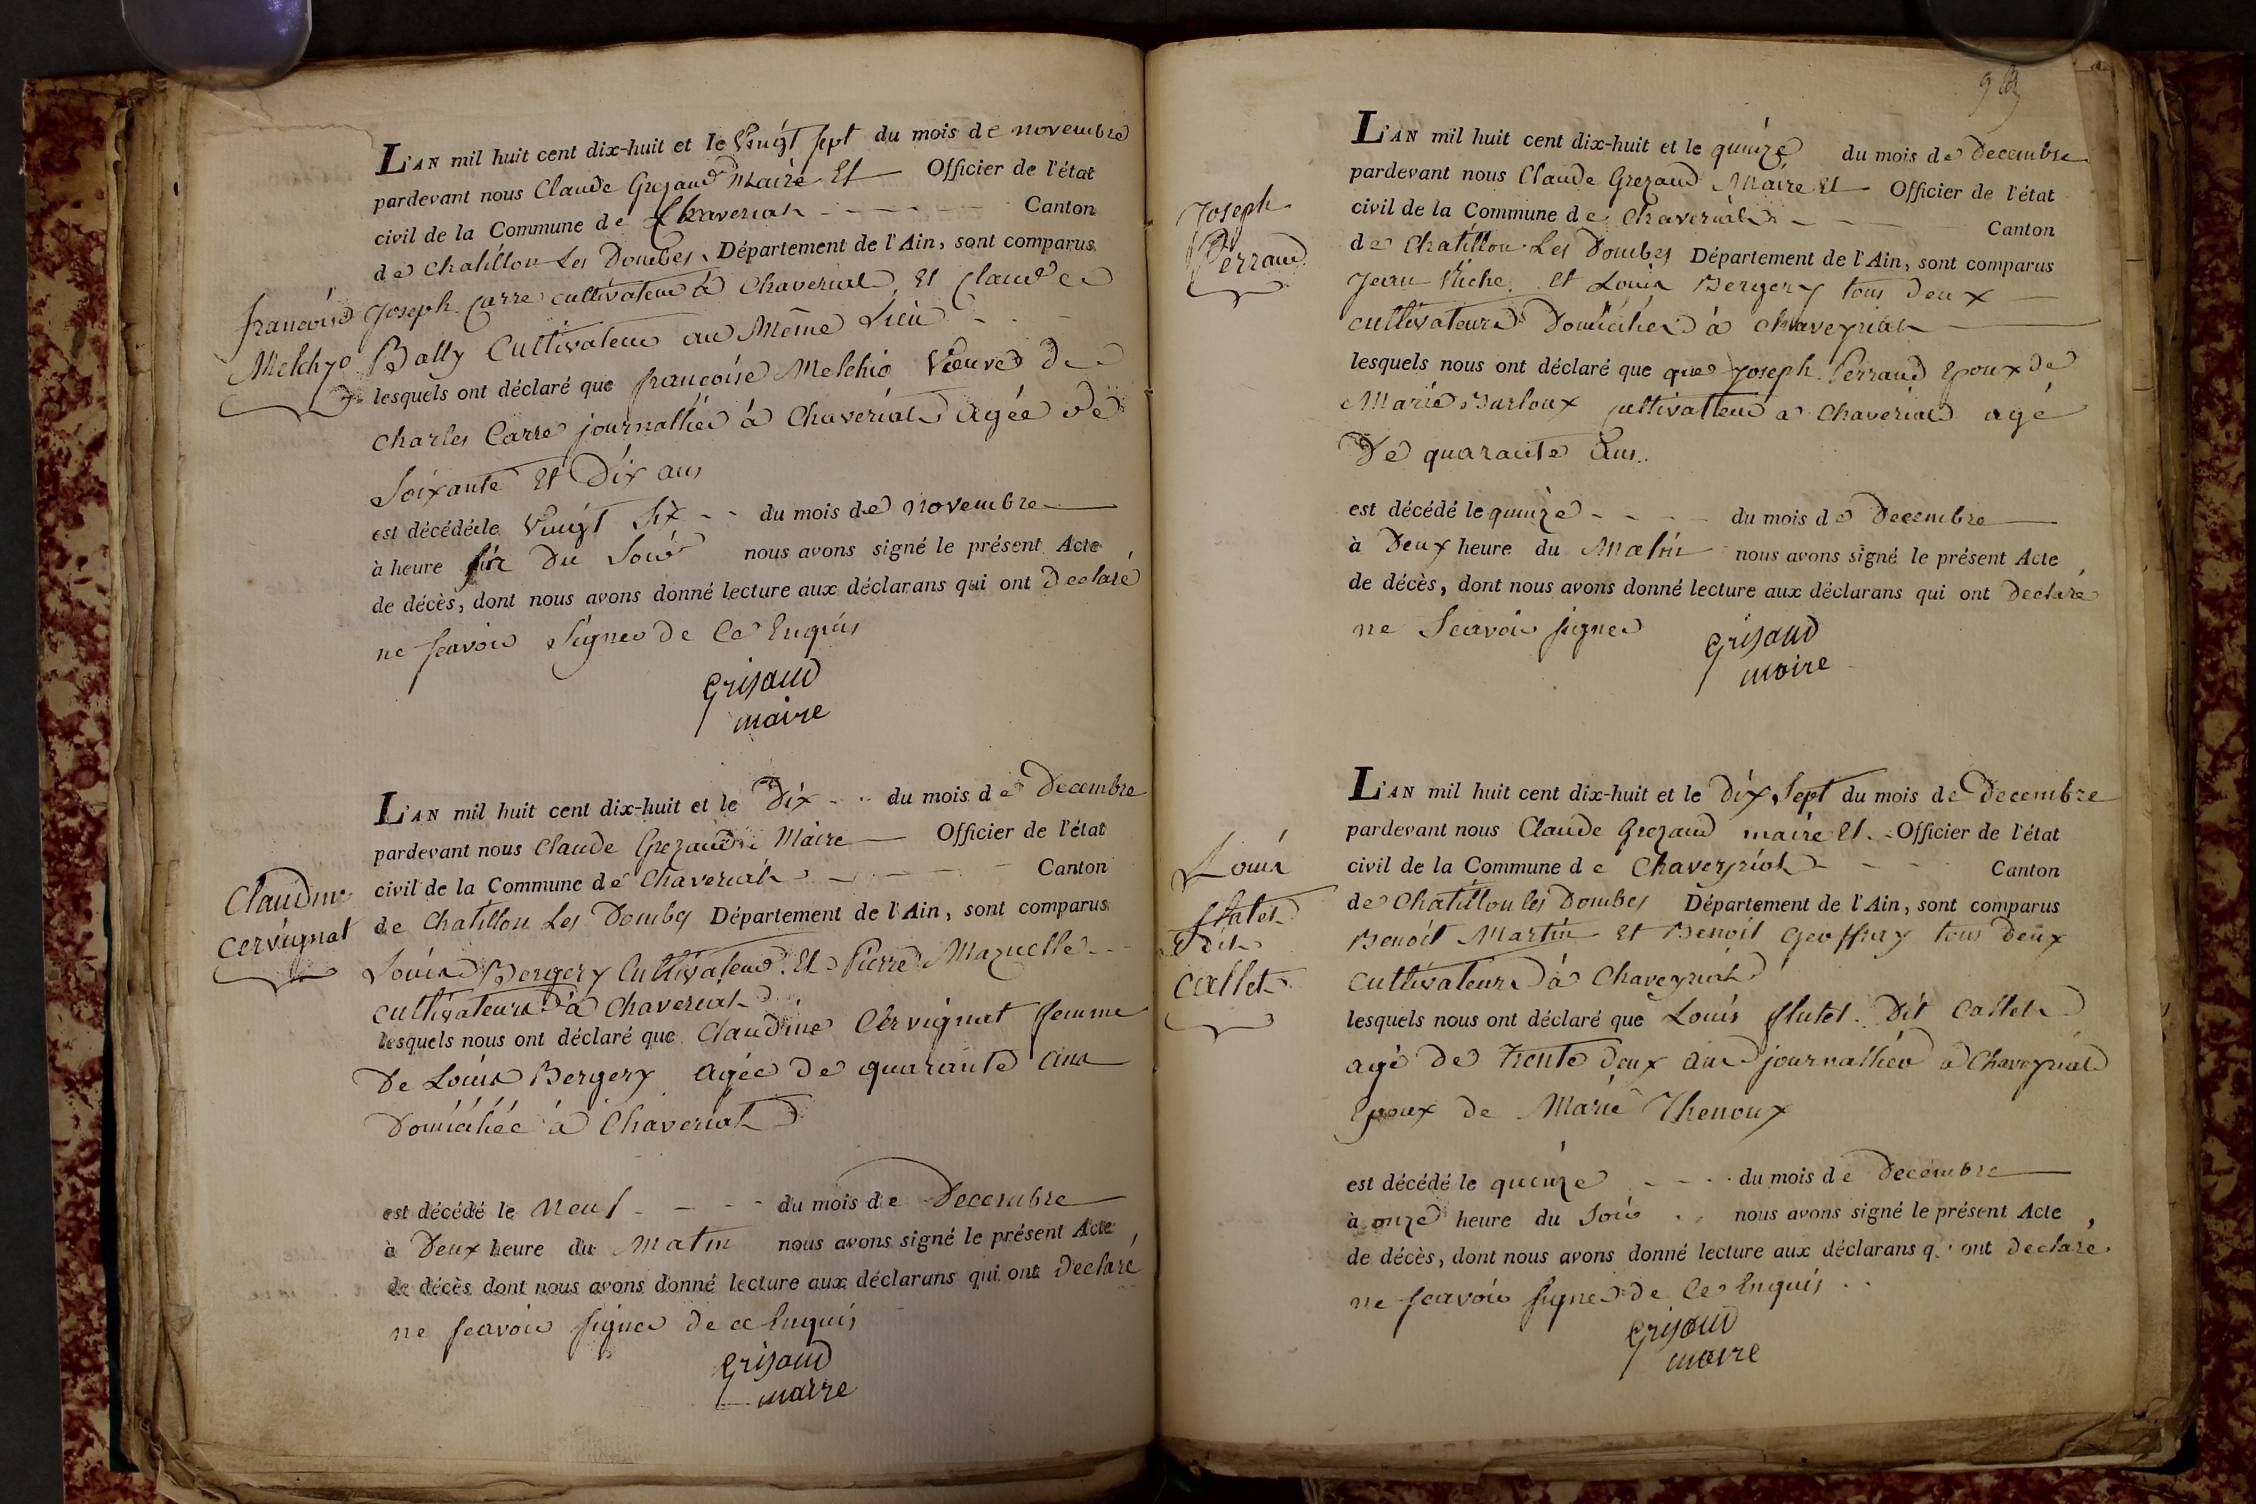 L'AN mil huit cent dix-huit et le Vingt sept du mois de novembre
pardevant nous Claude Grezaud Maire Et Officier de l'état
civil de la Commune de Chaveriat Canton
de Chatillon Les Dombes, Département de l'Ain, sont comparus
françoise
Melchyo
Joseph Carre cultivateur à Chaveriat, Et Claude
Bally Cultivateur au Même Lieu
lesquels ont déclaré que françoise Melchio Veuve De
Charles Carre journallier à Chaveriat Agée de
Soixante Et Dix ans
est décédée le Vingt Six du mois de novembre
à heure six Du Soir nous avons signé le présent Acte
de décès, dont nous avons donné lecture aux déclarans qui ont Declaré
ne scavoir Signer De Ce Enquis
Grisaud
maire
L'AN mil huit cent dix-huit et le Dix du mois de Decembre
pardevant nous Claude Grezaud Maire Officier de l'état
civil de la Commune de Chaveriat Canton
de Chatillon Les Dombes Département de l'Ain, sont comparus
Claudine
Cervignat
Louis Bergery Cultivateur Et Pierre Mazuelle
cultivateurs à Chaveriat
lesquels nous ont déclaré que Claudine Cervignat femme
De Louis Bergery Agée de quarante ans
Domiciliée à Chaveriat
est décédé le Neuf du mois de Decembre
à Deux heure du Matin nous avons signé le présent Acte
de décès dont nous avons donné lecture aux déclarans qui ont Declaré
ne scavoir signer de ce Enquis
Grisaud
maire
L'AN mil huit cent dix-huit et le quinze du mois de Decembre
pardevant nous Claude Grezaud Maire Et Officier de l'état
civil de la Commune de Chaveriat Canton
de Chatillon Les Dombes Département de l'Ain, sont comparus
Joseph
Perraud
Jean Et Louis Bergery tous Deux
cultivateurs Domiciliés à Chaveyriat
lesquels nous ont déclaré que que Joseph Perraud Epoux de
Marie Burloux cultivateur a Chaveriat agé
De quarante Ans
est décédé le quinze du mois de Decembre
à Deux heure du Matin nous avons signé le présent Acte
de décès, dont nous avons donné lecture aux déclarans qui ont Declaré
ne Scavoir signer
Grisaud
maire
L'AN mil huit cent dix-huit et le Dix Sept du mois de Decembre
pardevant nous Claude Grezaud maire Et Officier de l'état
civil de la Commune de Chaveyriat Canton
de Chatillon les Dombes Département de l'Ain, sont comparus
Louis
flutet
dit
Callet
Benoit Martin Et Benoit Geoffray tous Deux
Cultivateurs à Chaveyriat
lesquels nous ont déclaré que Louis flutet Dit Callet
agé de Trente Deux ans journallier à Chaveyriat
Epoux de Marie Thenoux
est décédé le quinze du mois de Decembre
à onze heure du Soir nous avons signé le présent Acte
de décès, dont nous avons donné lecture aux déclarans qui ont declaré
ne scavoir signer de Ce Enquis
Grisaud
maire